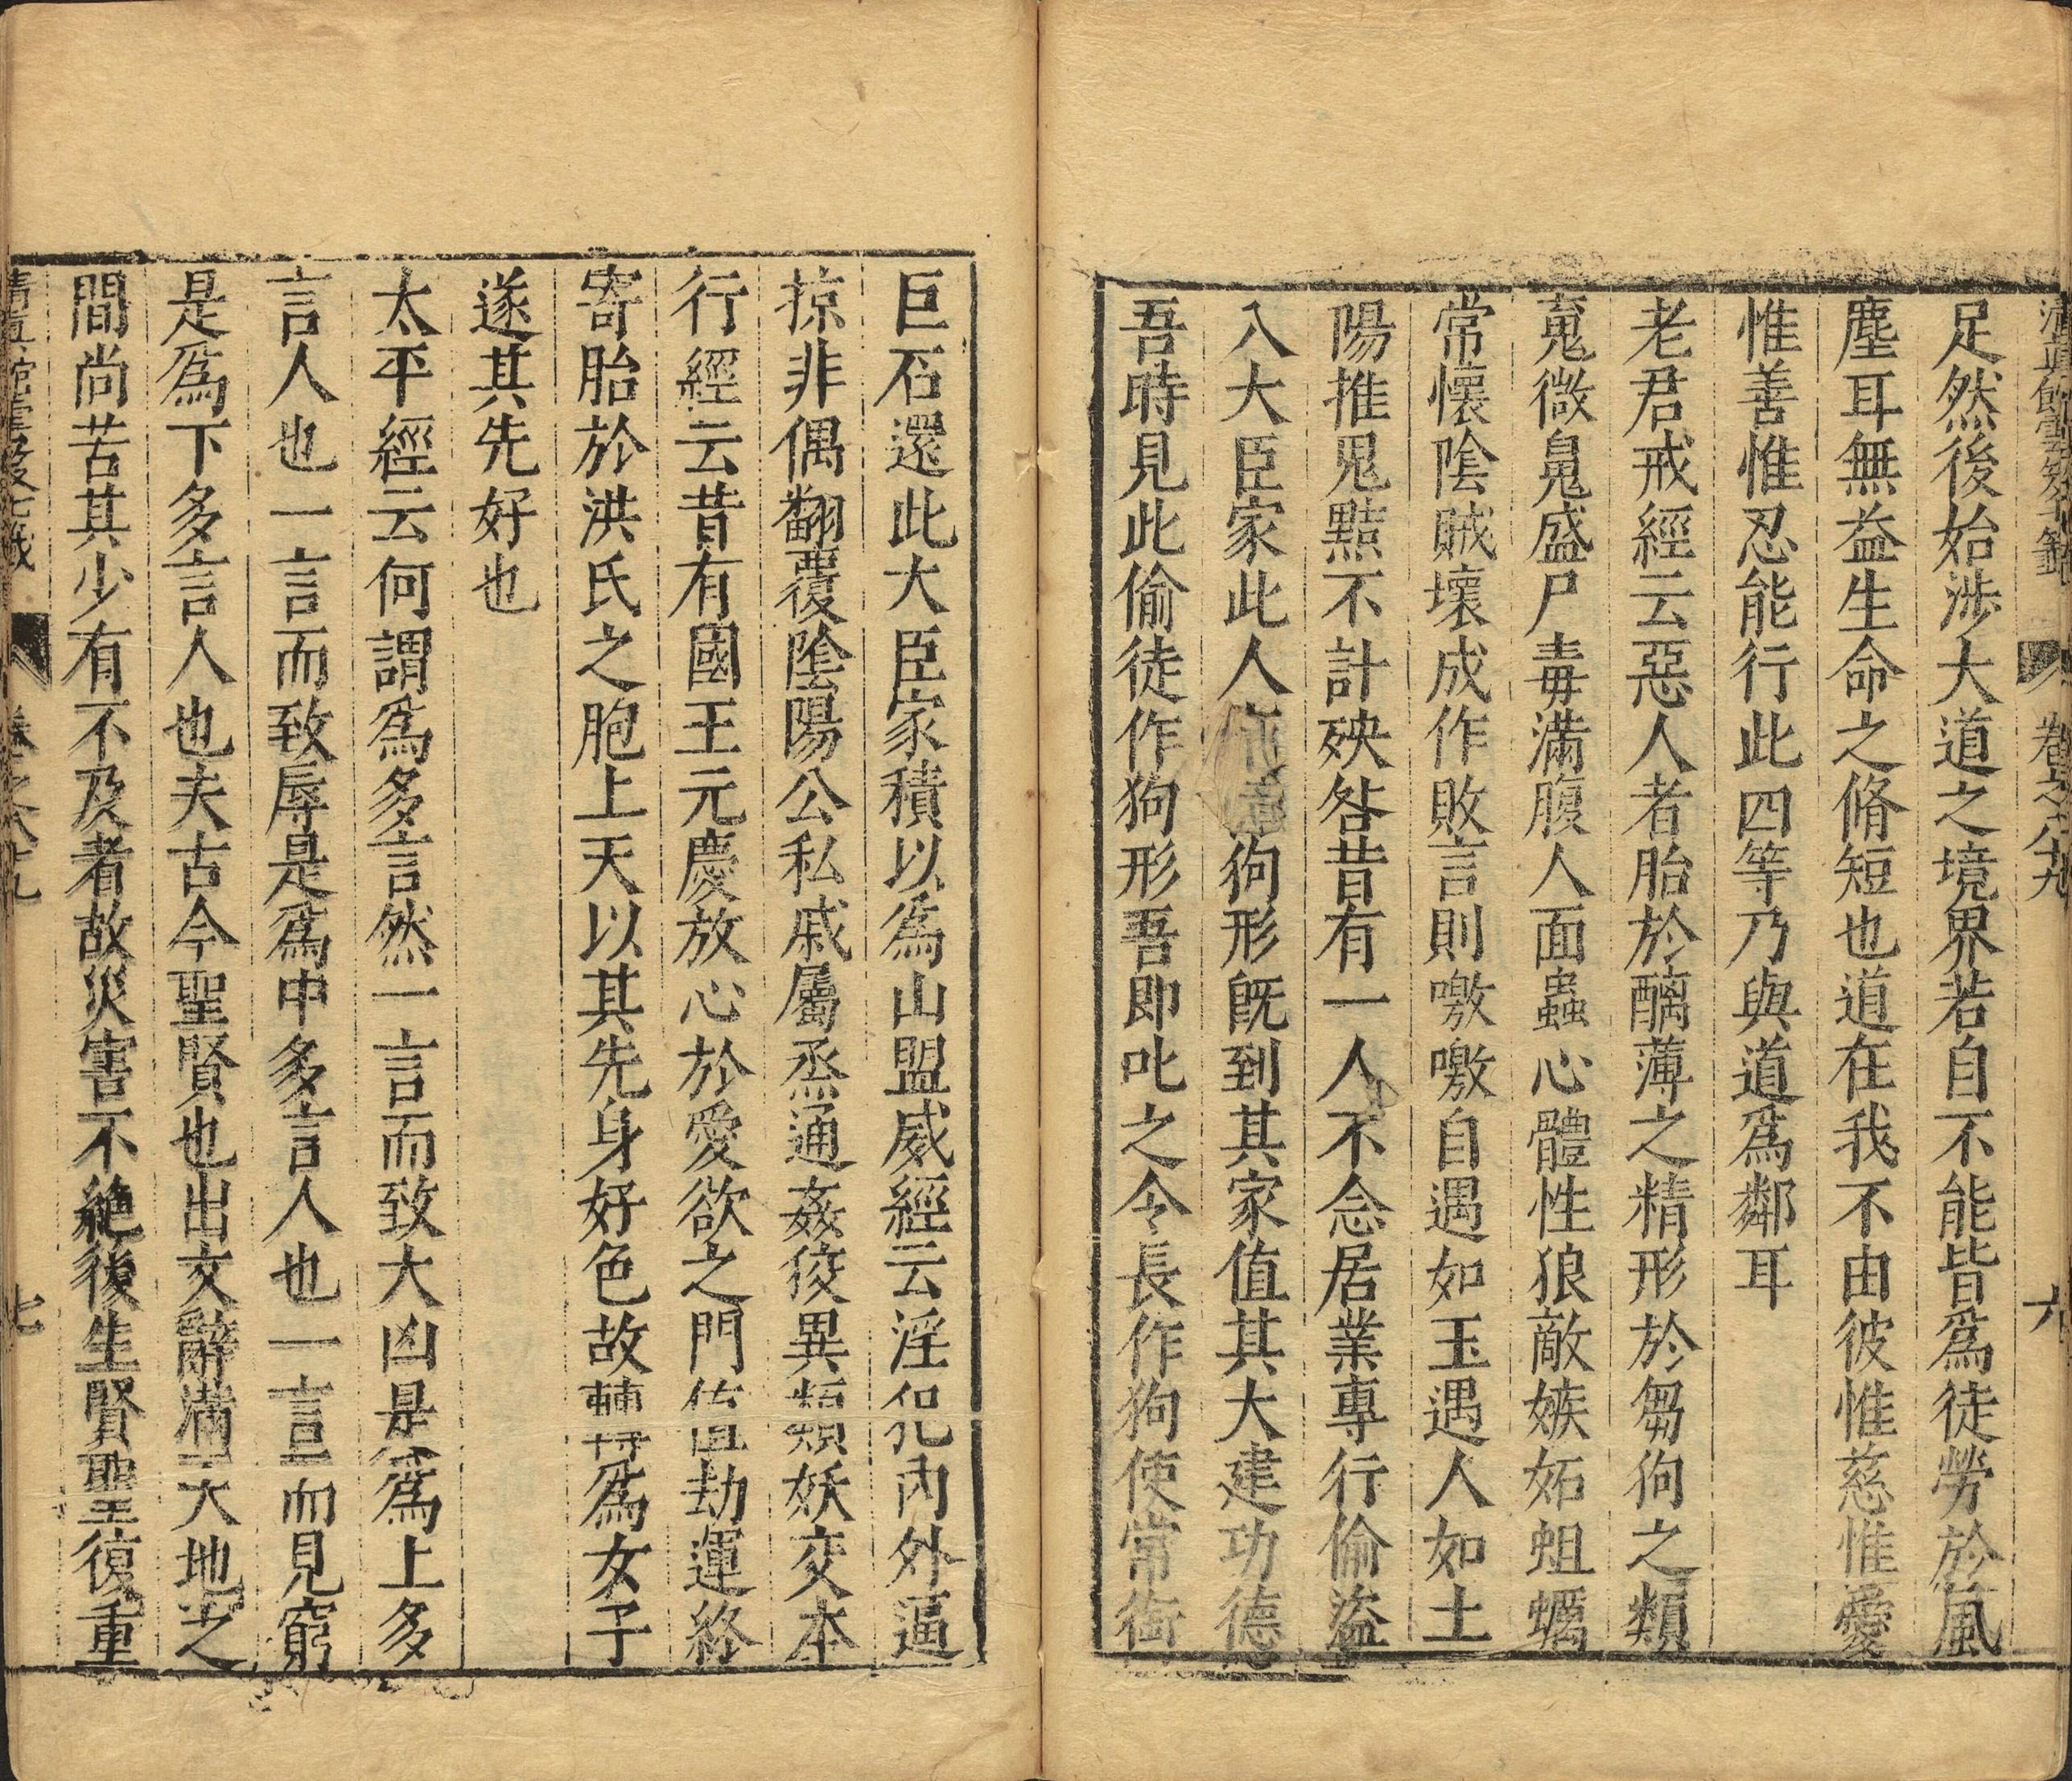 卷之八十九
六
足然後始涉大道之境界若自不能皆爲徒勞於風
塵耳無益生命之脩短也道在我不由彼惟慈惟愛
惟善惟忍能行此四等乃與道爲鄰耳
老君戒經云惡人者胎於醨薄之精形於芻狗之類
䰟微䰟盛尸毒滿腹人面蟲心體性狼敵嫉妬蛆蠣
常懷陰賊壞成作敗言則噭噭自遇如玉遇人如土
陽推鬼黠不計殃咎昔有一人不念居業專行偷盜
入大臣家此人狗形旣到其家值其大建功德
吾時見此偷徒作狗形吾即叱之令長作狗使常銜
巨石還此大臣家積以爲山盟威經云淫化內外逼
掠非偶翻覆陰陽公私戚屬烝通姦狡異類妖交本
行經云昔有國王元慶放心於愛欲之門値劫運終
寄胎於洪氏之胞上天以其先身好色故轉爲女子
遂其先好也
太平經云何謂爲多言然一言而致大凶是爲上多
言人也一言而致辱是爲中多言人也一言而見窮
是爲下多言人也夫古今聖賢也出文辭滿天地之
間尚苦其少有不及者故災害不絶後生賢聖復重
清眞館雲笈七籤
卷之八十九
七